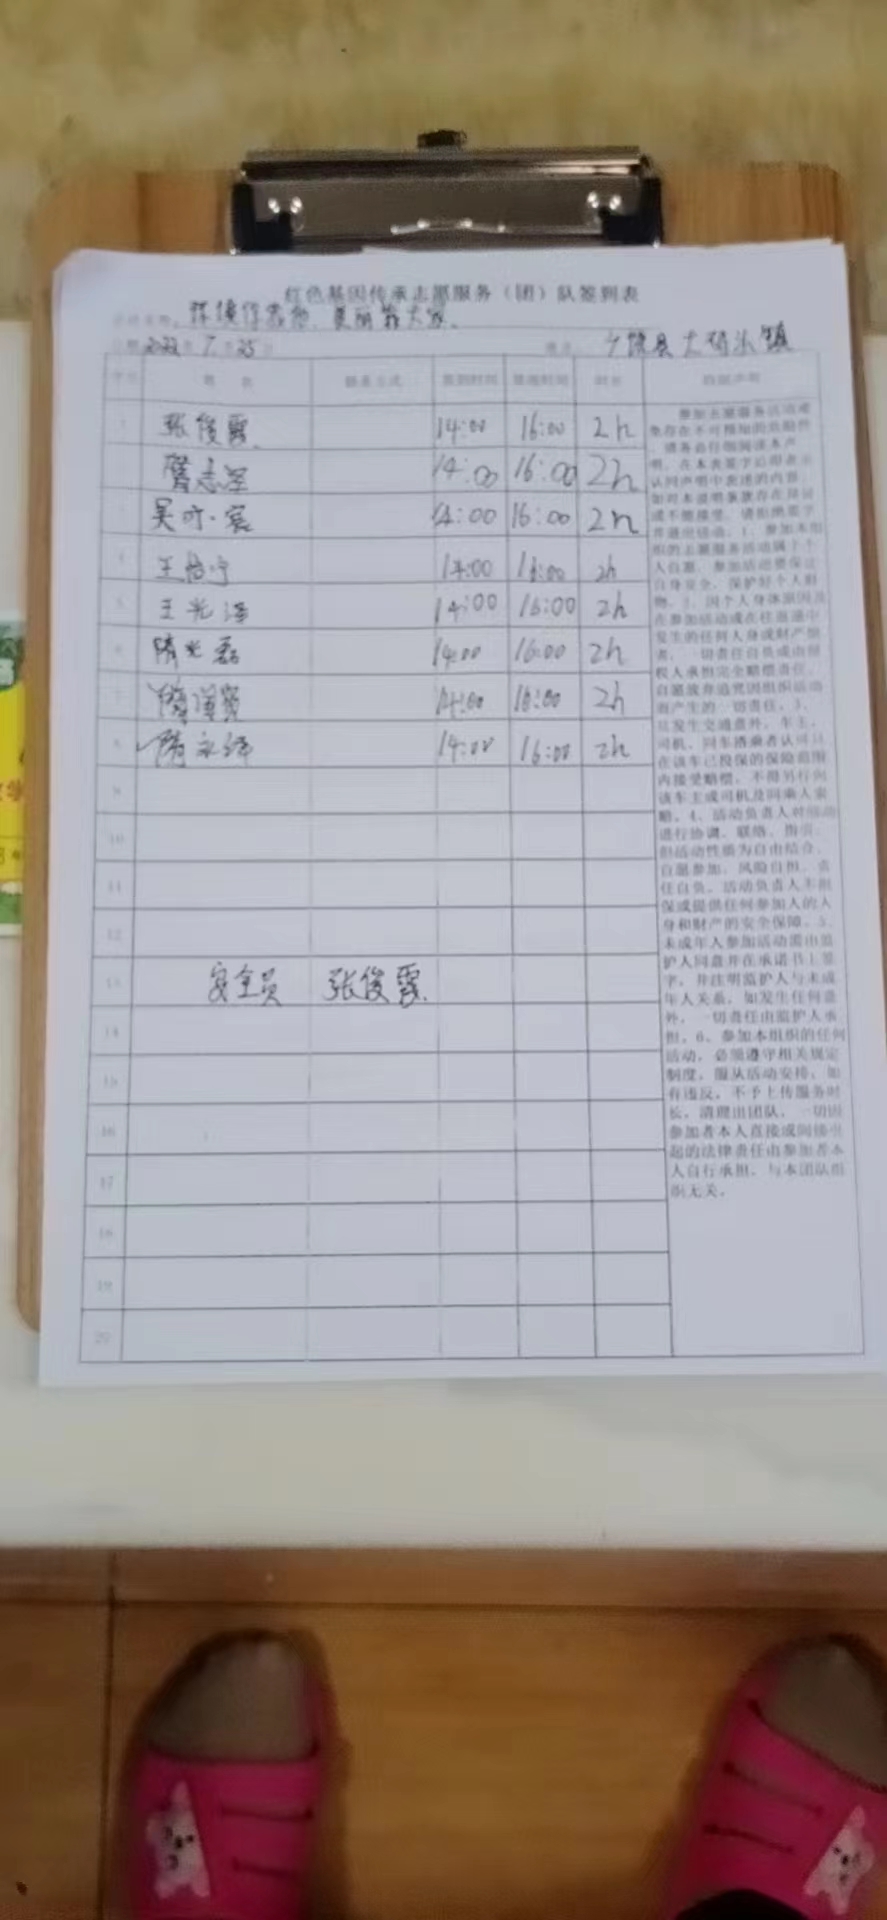 红色基因传承志愿服务（团）队签到表
活动名称：环境保常物，美丽靠大家。
日期2022年7月25日 地点：广饶县大码头镇
序号 姓名 联系方式 签到时间 签退时间 时长 特别声明
1 张俊霞 14:00 16:00 2h
14:00 16:00 2h
14:00 16:00 2h
4 王怡宁 14:00 16:00 2h
5 王光泽 14:00 16:00 2h
6 隋光磊 14:00 16:00 2h
7 14:00 16:00 2h
8 隋永锋 14:00 16:00 2h
9
10
11
12
13 安全员 张俊霞
14
15
16
17
18
19
20
参加志愿服务活动难
免存在不可预知的危险性
，请务必仔细阅读本声
明，在本表签字后即表示
认同声明中表述的内容，
如对本说明条款存在异议
或不能接受，请拒绝签字
并退出活动。1、参加本组
织的志愿服务活动属于个
人自愿，参加活动需保证
自身安全，保护好个人财
物。2、因个人身体原因及
在参加活动或在往返途中
发生的任何人身或财产损
害，一切责任自负或由侵
权人承担完全赔偿责任，
自愿放弃追究因组织活动
而产生的一切责任。3、
且发生交通意外，车主、
司机、同车搭乘者认可只
在该车已投保的保险范围
内接受赔偿，不得另行向
该车主或司机及同乘人索
赔。4、活动负责人对活动
进行协调、联络、指引，
但活动性质为自由结合、
自愿参加、风险自担、责
任自负，活动负责人不担
保或提供任何参加人的人
身和财产的安全保障。5、
未成年人参加活动需由监
护人同意并在承诺书上签
字，并注明监护人与未成
年人关系，如发生任何意
外，一切责任由监护人承
担。6、参加本组织的任何
活动，必须遵守相关规定
制度，服从活动安排，如
有违反，不予上传服务时
长，清理出团队，一切因
参加者本人直接或间接引
起的法律责任由参加者本
人自行承担，与本团队组
织无关。